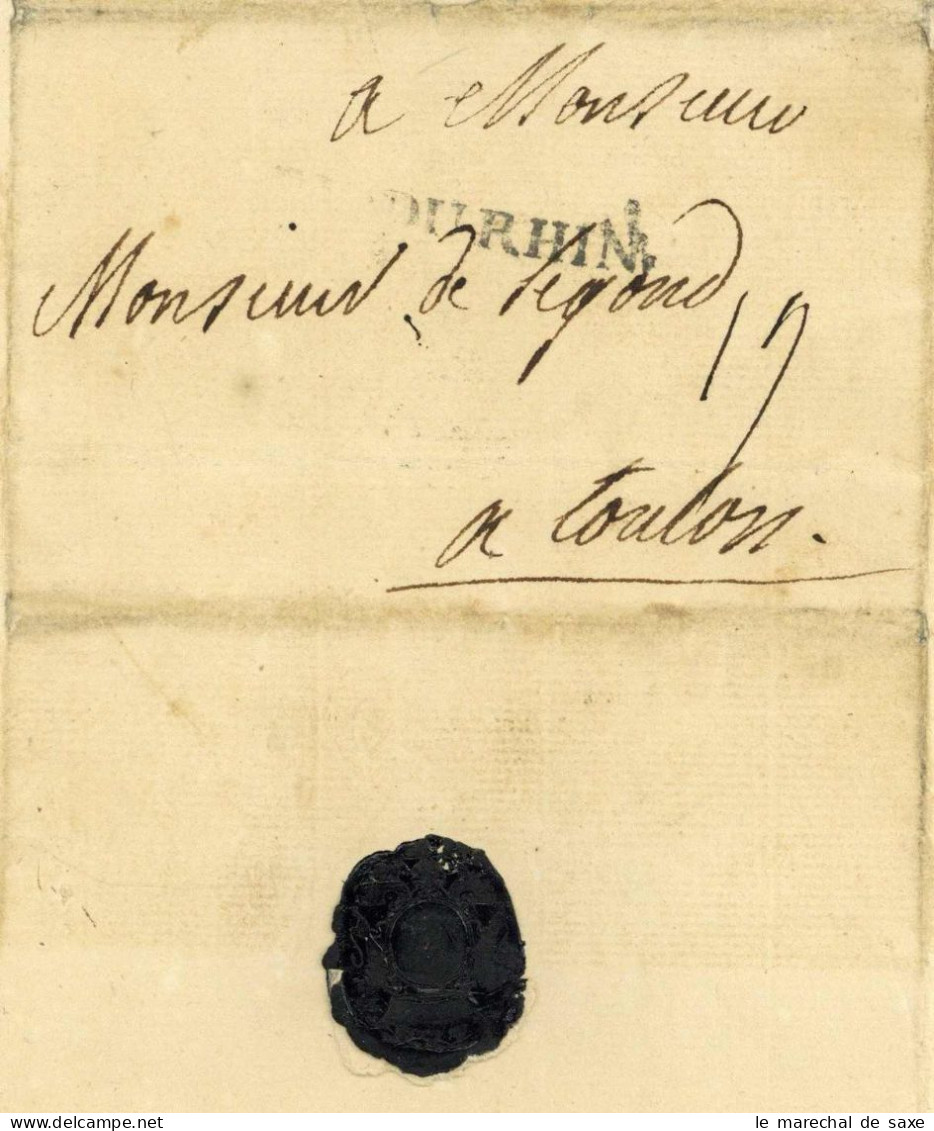 a Monsieur
DU RHIN
Monsieur de Segond
17
a Toulon.
le marechal de saxe